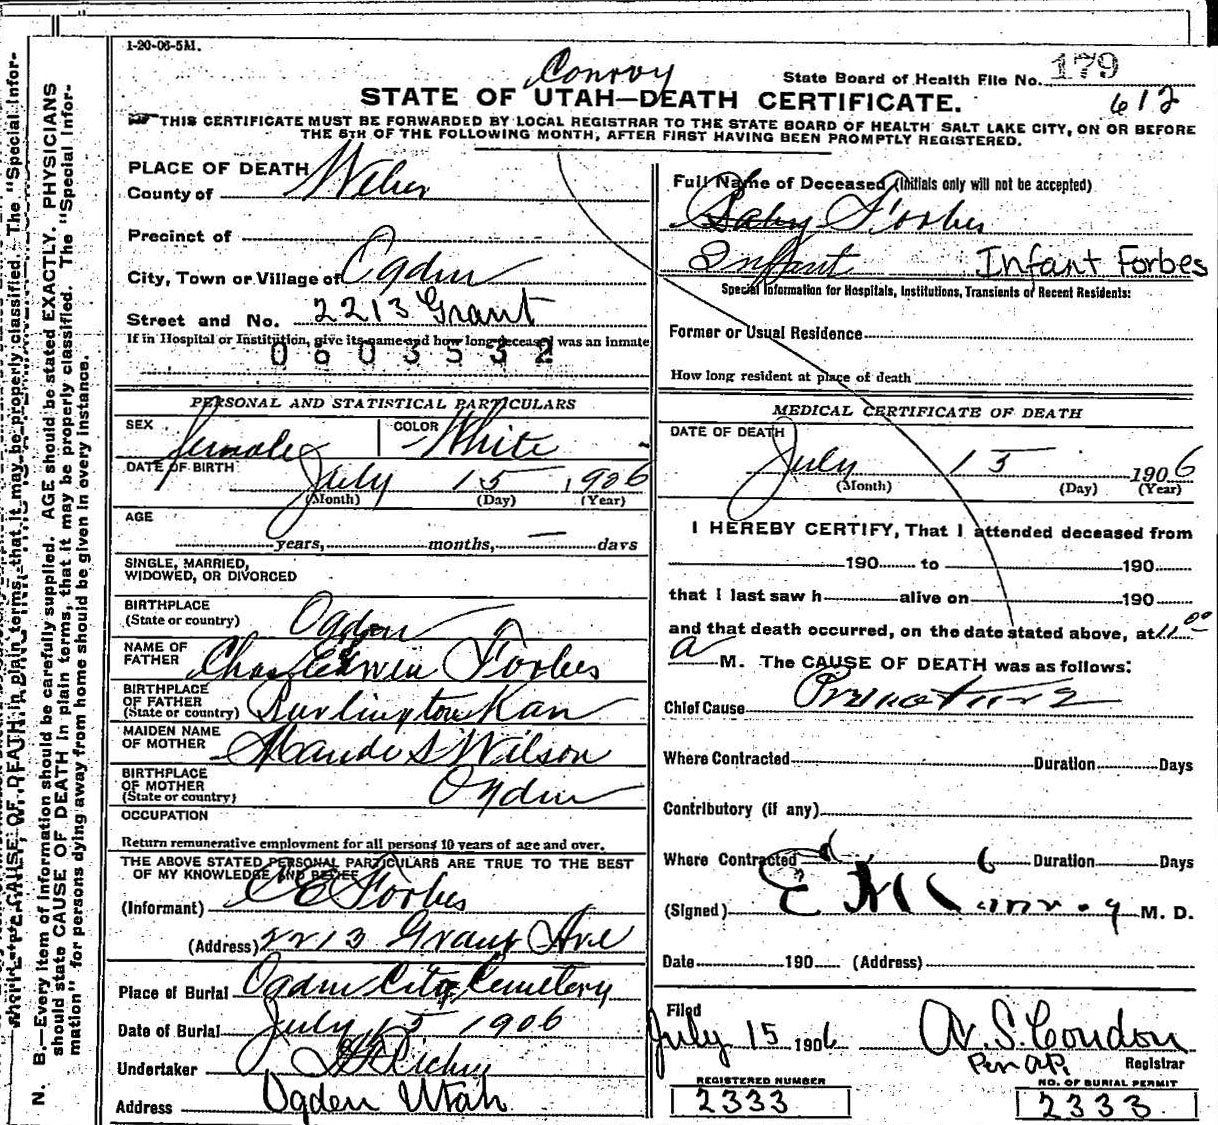 1-20-06-5M.
Conroy
State Board of Health File No. 179
STATE OF UTAH—DEATH CERTIFICATE.
612
THIS CERTIFICATE MUST BE FORWARDED BY LOCAL REGISTRAR TO THE STATE BOARD OF HEALTH SALT LAKE CITY, ON OR BEFORE
THE 5TH OF THE FOLLOWING MONTH, AFTER FIRST HAVING BEEN PROMPTLY REGISTERED.
PLACE OF DEATH
County of Weber
Precinct of
City, Town or Village of Ogden
Street and No. 2213 Grant
If in Hospital or Institution, give its name and how long deceased was an inmate
0603532
PERSONAL AND STATISTICAL PARTICULARS
SEX female COLOR White
DATE OF BIRTH July 15 1906
(Month) (Day) (Year)
AGE
years, months, — days
SINGLE, MARRIED,
WIDOWED, OR DIVORCED
BIRTHPLACE
(State or country) Ogden
NAME OF
FATHER Chas Edwin Forbes
BIRTHPLACE
OF FATHER
(State or country) Burlington Kan
MAIDEN NAME
OF MOTHER Maude S Wilson
BIRTHPLACE
OF MOTHER
(State or country) Ogden
OCCUPATION
Return remunerative employment for all persons 10 years of age and over.
THE ABOVE STATED PERSONAL PARTICULARS ARE TRUE TO THE BEST
OF MY KNOWLEDGE AND BELIEF
(Informant) C E Forbes
(Address) 2213 Grant Ave
Place of Burial Ogden City Cemetery
Date of Burial July 15 1906
Undertaker
Address Ogden Utah
Full Name of Deceased (Initials only will not be accepted)
Baby Forbes
Infant Infant Forbes
Special Information for Hospitals, Institutions, Transients or Recent Residents:
Former or Usual Residence
How long resident at place of death
MEDICAL CERTIFICATE OF DEATH
DATE OF DEATH
July 15 1906
(Month) (Day) (Year)
I HEREBY CERTIFY, That I attended deceased from
190 to 190
that I last saw h alive on 190
and that death occurred, on the date stated above, at 11.00
a M. The CAUSE OF DEATH was as follows:
Chief Cause Premature
Where Contracted Duration Days
Contributory (if any)
Where Contracted Duration Days
(Signed) M. D.
Date 190 (Address)
Filed
July 15 1906 A. S. Condon
Per A.P. Registrar
REGISTERED NUMBER
2333
NO. OF BURIAL PERMIT
2333
N. B.—Every item of information should be carefully supplied. AGE should be stated EXACTLY. PHYSICIANS
should state CAUSE OF DEATH in plain terms, that it may be properly classified. The "Special Infor-
mation" for persons dying away from home should be given in every instance.